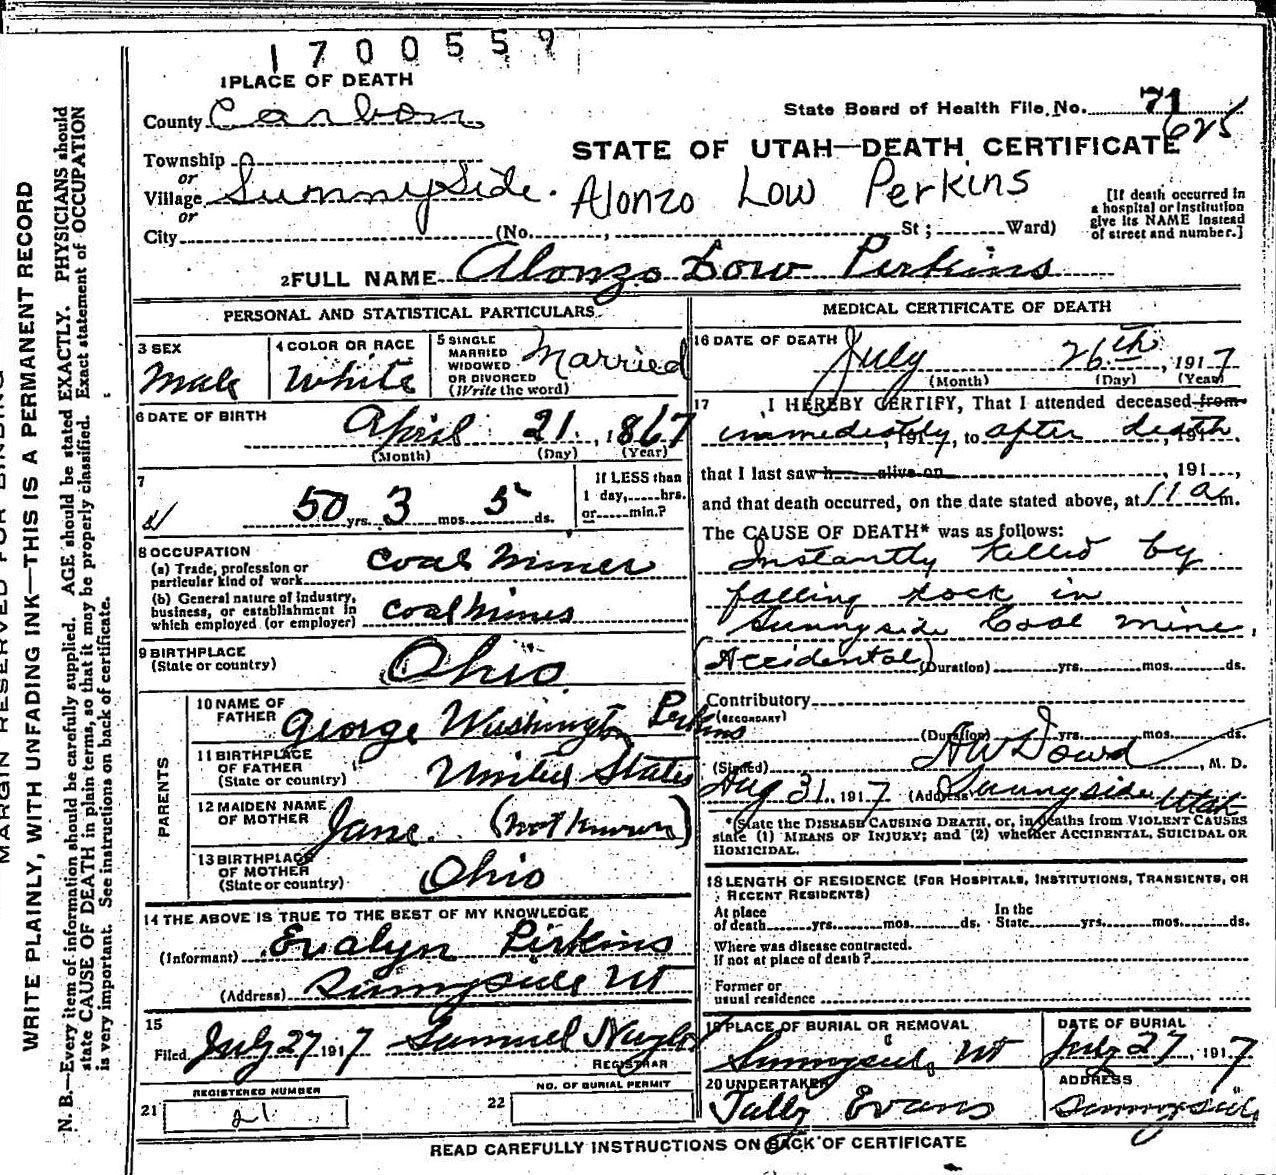 1700559
1 PLACE OF DEATH
County Carbon
State Board of Health File No. 71
625
Township
or
Village Sunnyside.
or
City (No. , St ; Ward)
STATE OF UTAH—DEATH CERTIFICATE
Alonzo Low Perkins
[If death occurred in
a hospital or institution
give its NAME instead
of street and number.]
2 FULL NAME Alonzo Low Perkins
PERSONAL AND STATISTICAL PARTICULARS
3 SEX
Male
4 COLOR OR RACE
White
5 SINGLE
MARRIED
WIDOWED
OR DIVORCED
(Write the word)
Married
6 DATE OF BIRTH
April 21, 1867
(Month) (Day) (Year)
7
50 yrs. 3 mos. 5 ds.
If LESS than
1 day, hrs.
or min.?
8 OCCUPATION
(a) Trade, profession or
particular kind of work
Coal Miner
(b) General nature of industry,
business, or establishment in
which employed (or employer)
Coal Mines
9 BIRTHPLACE
(State or country)
Ohio
PARENTS
10 NAME OF
FATHER
George Washington Perkins
11 BIRTHPLACE
OF FATHER
(State or country)
United States
12 MAIDEN NAME
OF MOTHER
Jane. (not known)
13 BIRTHPLACE
OF MOTHER
(State or country)
Ohio
14 THE ABOVE IS TRUE TO THE BEST OF MY KNOWLEDGE
(Informant) Evalyn Perkins
(Address) Sunnyside Ut
15
Filed July 27 1917 Samuel Naylor
REGISTRAR
REGISTERED NUMBER
21 21
NO. OF BURIAL PERMIT
22
MEDICAL CERTIFICATE OF DEATH
16 DATE OF DEATH
July 26th, 1917
(Month) (Day) (Year)
17 I HEREBY CERTIFY, That I attended deceased from
immediately, 191 , to after death, 191 .
that I last saw h alive on , 191 ,
and that death occurred, on the date stated above, at 11 a m.
The CAUSE OF DEATH* was as follows:
Instantly killed by
falling rock in
Sunnyside Coal mine,
(Accidental) (Duration) yrs. mos. ds.
Contributory
(SECONDARY)
(Duration) yrs. mos. ds.
(Signed) A W Dowd, M. D.
Aug 31, 1917 (Address) Sunnyside Utah
*State the DISEASE CAUSING DEATH, or, in deaths from VIOLENT CAUSES
state (1) MEANS OF INJURY; and (2) whether ACCIDENTAL, SUICIDAL OR
HOMICIDAL.
18 LENGTH OF RESIDENCE (FOR HOSPITALS, INSTITUTIONS, TRANSIENTS, OR
RECENT RESIDENTS)
At place
of death yrs. mos. ds.
In the
State yrs. mos. ds.
Where was disease contracted.
If not at place of death?
Former or
usual residence
19 PLACE OF BURIAL OR REMOVAL
Sunnyside, Ut
DATE OF BURIAL
July 27, 1917
20 UNDERTAKER
Tally Evans
ADDRESS
Sunnyside
READ CAREFULLY INSTRUCTIONS ON BACK OF CERTIFICATE
MARGIN RESERVED FOR BINDING
WRITE PLAINLY, WITH UNFADING INK—THIS IS A PERMANENT RECORD
N. B.—Every item of information should be carefully supplied. AGE should be stated EXACTLY. PHYSICIANS should
state CAUSE OF DEATH in plain terms, so that it may be properly classified. Exact statement of OCCUPATION
is very important. See instructions on back of certificate.